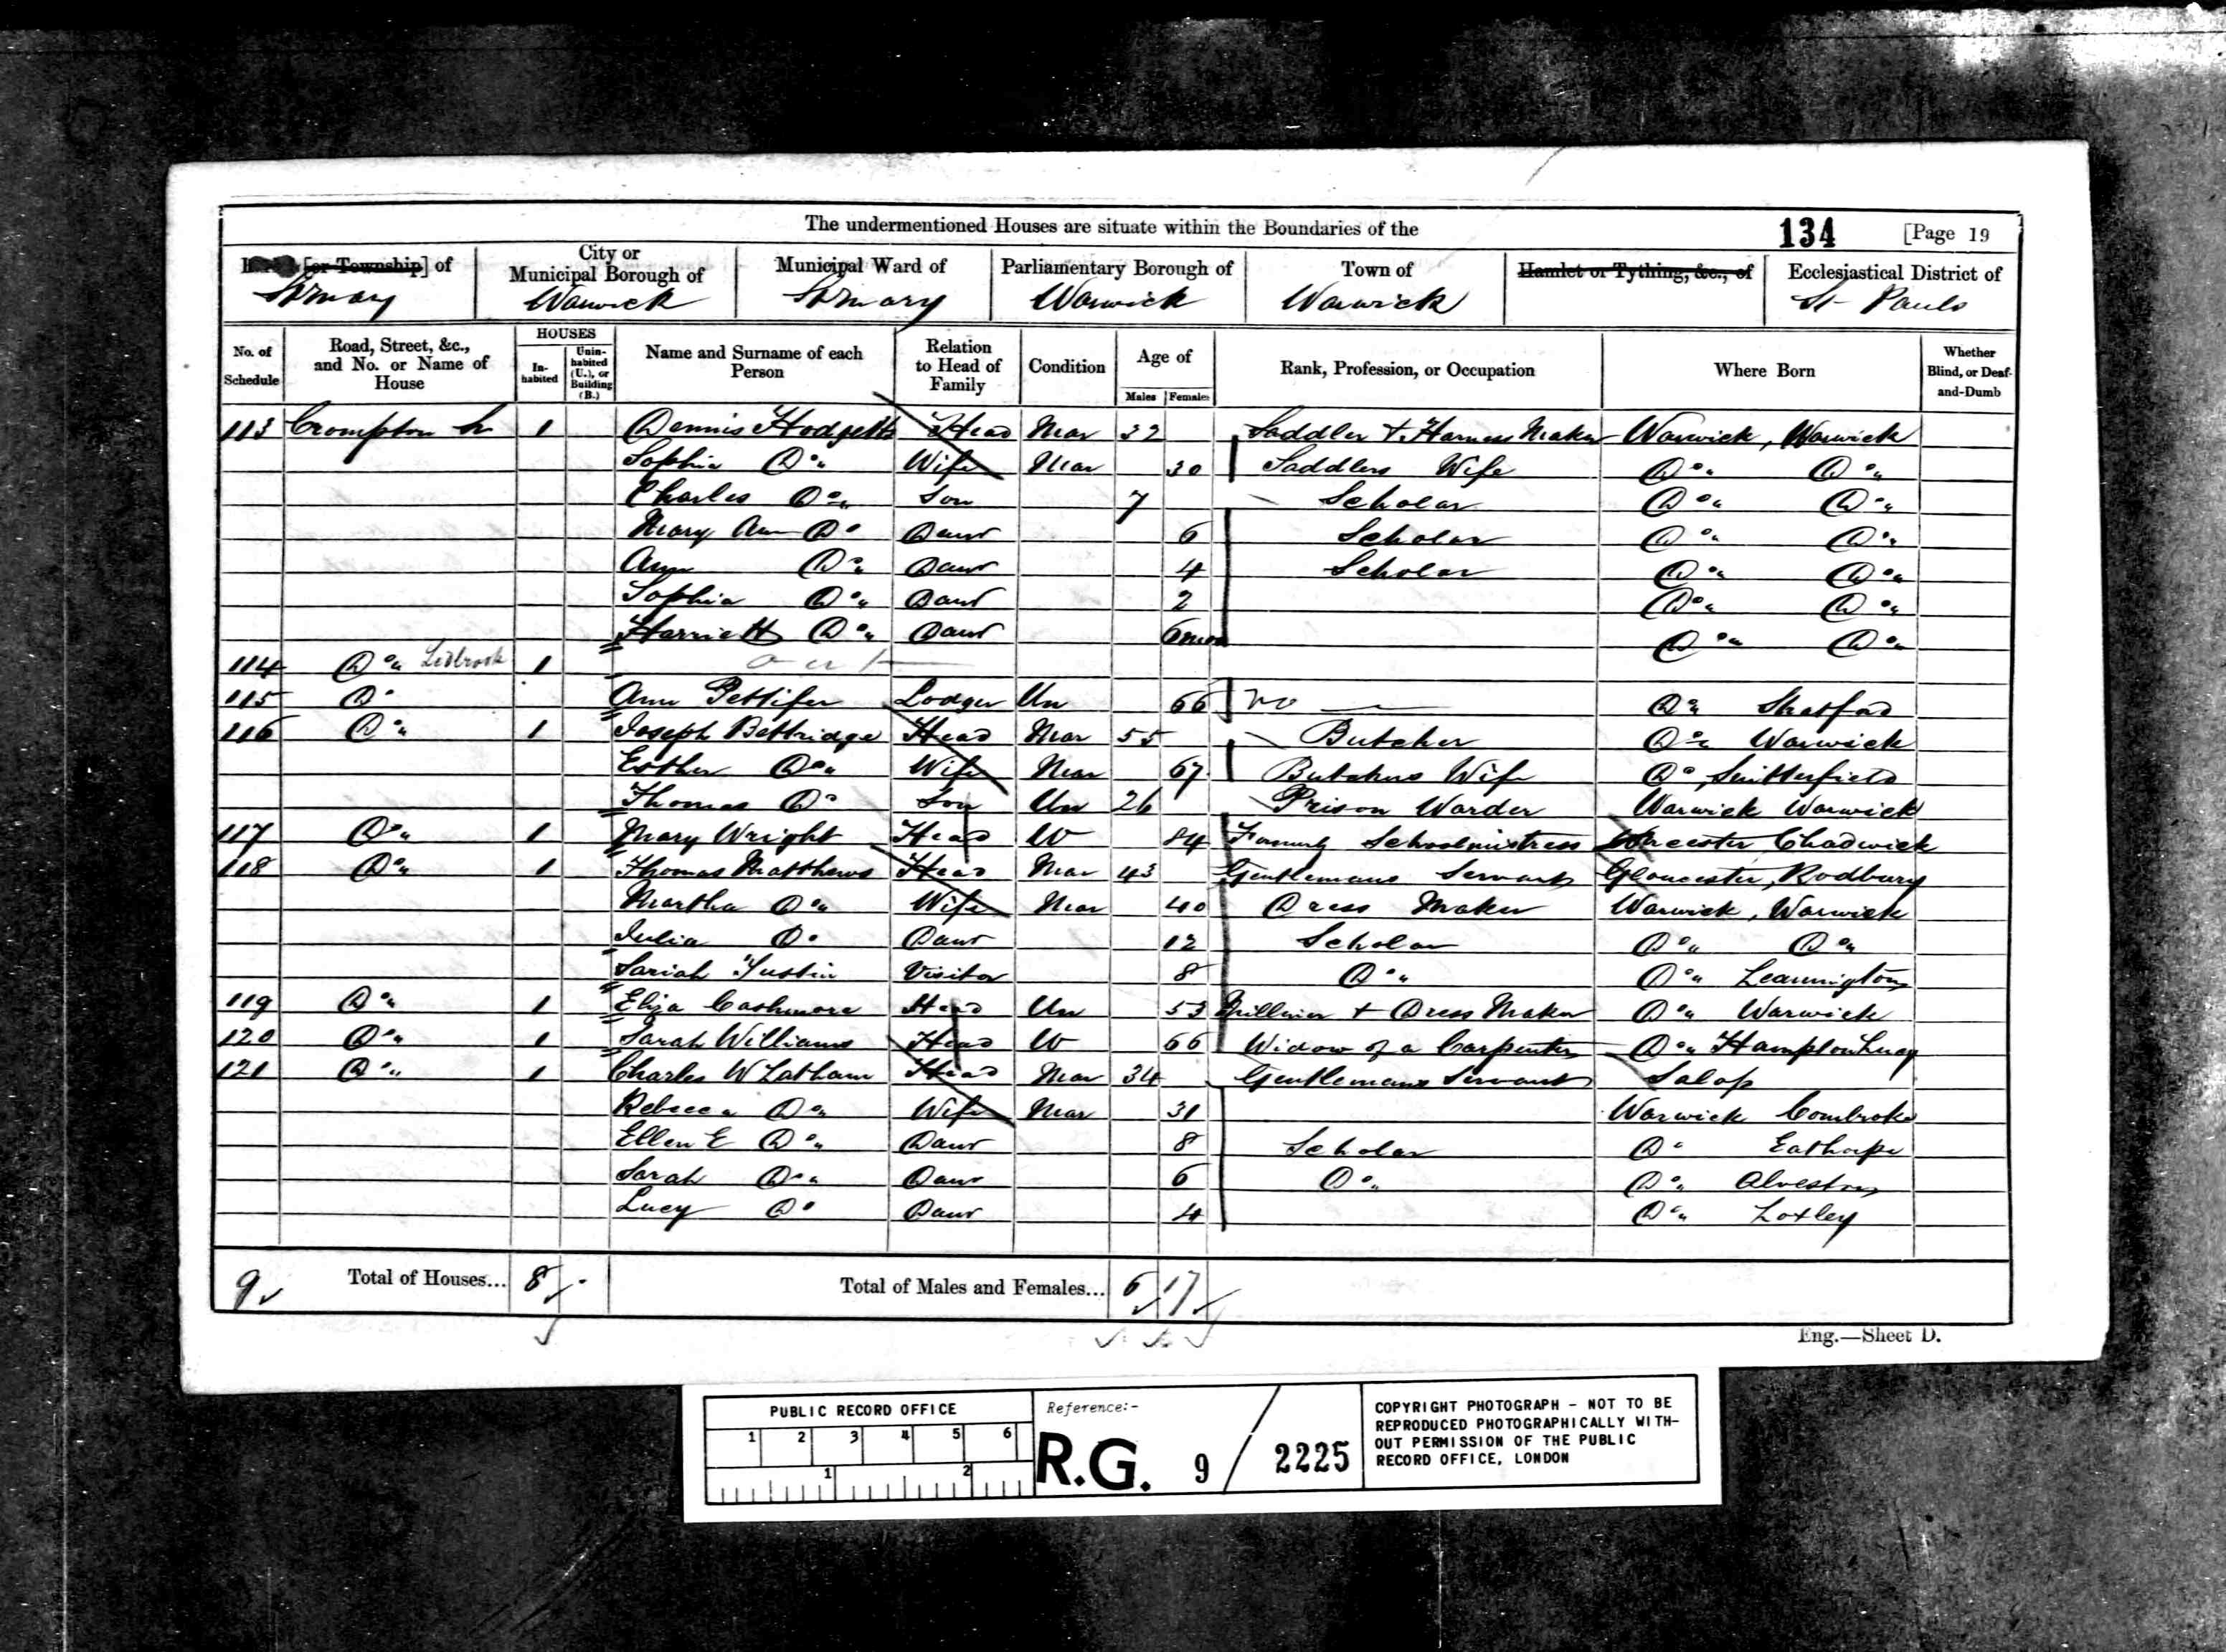 The undermentioned Houses are situate within the Boundaries of the 134 [Page 19
[or Township] of St Mary
City or Municipal Borough of Warwick
Municipal Ward of St Mary
Parliamentary Borough of Warwick
Town of Warwick
Hamlet or Tything, &c., of
Ecclesiastical District of St Pauls
No. of Schedule
Road, Street, &c., and No. or Name of House
HOUSES
In-habited
Unin-habited (U.), or Building (B.)
Name and Surname of each Person
Relation to Head of Family
Condition
Age of
Males Females
Rank, Profession, or Occupation
Where Born
Whether Blind, or Deaf-and-Dumb
113 Crompton St 1 Dennis Hodgetts Head Mar 32 Saddler & Harness Maker Warwick, Warwick
Sophia Do Wife Mar 30 Saddlers Wife Do Do
Charles Do Son 7 Scholar Do Do
Mary Ann Do Daur 6 Scholar Do Do
Ann Do Daur 4 Scholar Do Do
Sophia Do Daur 2 Do Do
Harriett Do Daur 6 mos Do Do
114 Do 1 out
115 Do Ann Pettifer Lodger Un 66 no Do Stratford
116 Do 1 Joseph Bettridge Head Mar 55 Butcher Do Warwick
Esther Do Wife Mar 67 Butchers Wife Do, Snitterfield
Thomas Do Son Un 26 Prison Warder Warwick Warwick
117 Do 1 Mary Wright Head W 84 Formerly Schoolmistress Worcester Chadwick
118 Do 1 Thomas Matthews Head Mar 43 Gentlemans Servant Gloucester, Rodbury
Martha Do Wife Mar 40 Dress Maker Warwick, Warwick
Julia Do Daur 12 Scholar Do Do
Sariah Justin Visitor 8 Do Do Leamington
119 Do 1 Eliza Cashmore Head Un 53 Milliner & Dress Maker Do Warwick
120 Do 1 Sarah Williams Head W 66 Widow of a Carpenter Do Hampton Lucy
121 Do 1 Charles W Latham Head Mar 34 Gentlemans Servant Salop
Rebecca Do Wife Mar 31 Warwick Combroke
Ellen E Do Daur 8 Scholar Do Eathorpe
Sarah Do Daur 6 Do Do Alveston
Lucy Do Daur 4 Do Loxley
9 Total of Houses... 8 Total of Males and Females... 6 17
Eng.—Sheet D.
PUBLIC RECORD OFFICE
1 2 3 4 5 6
1 2
Reference:-
R.G. 9 / 2225
COPYRIGHT PHOTOGRAPH - NOT TO BE
REPRODUCED PHOTOGRAPHICALLY WITH-
OUT PERMISSION OF THE PUBLIC
RECORD OFFICE, LONDON